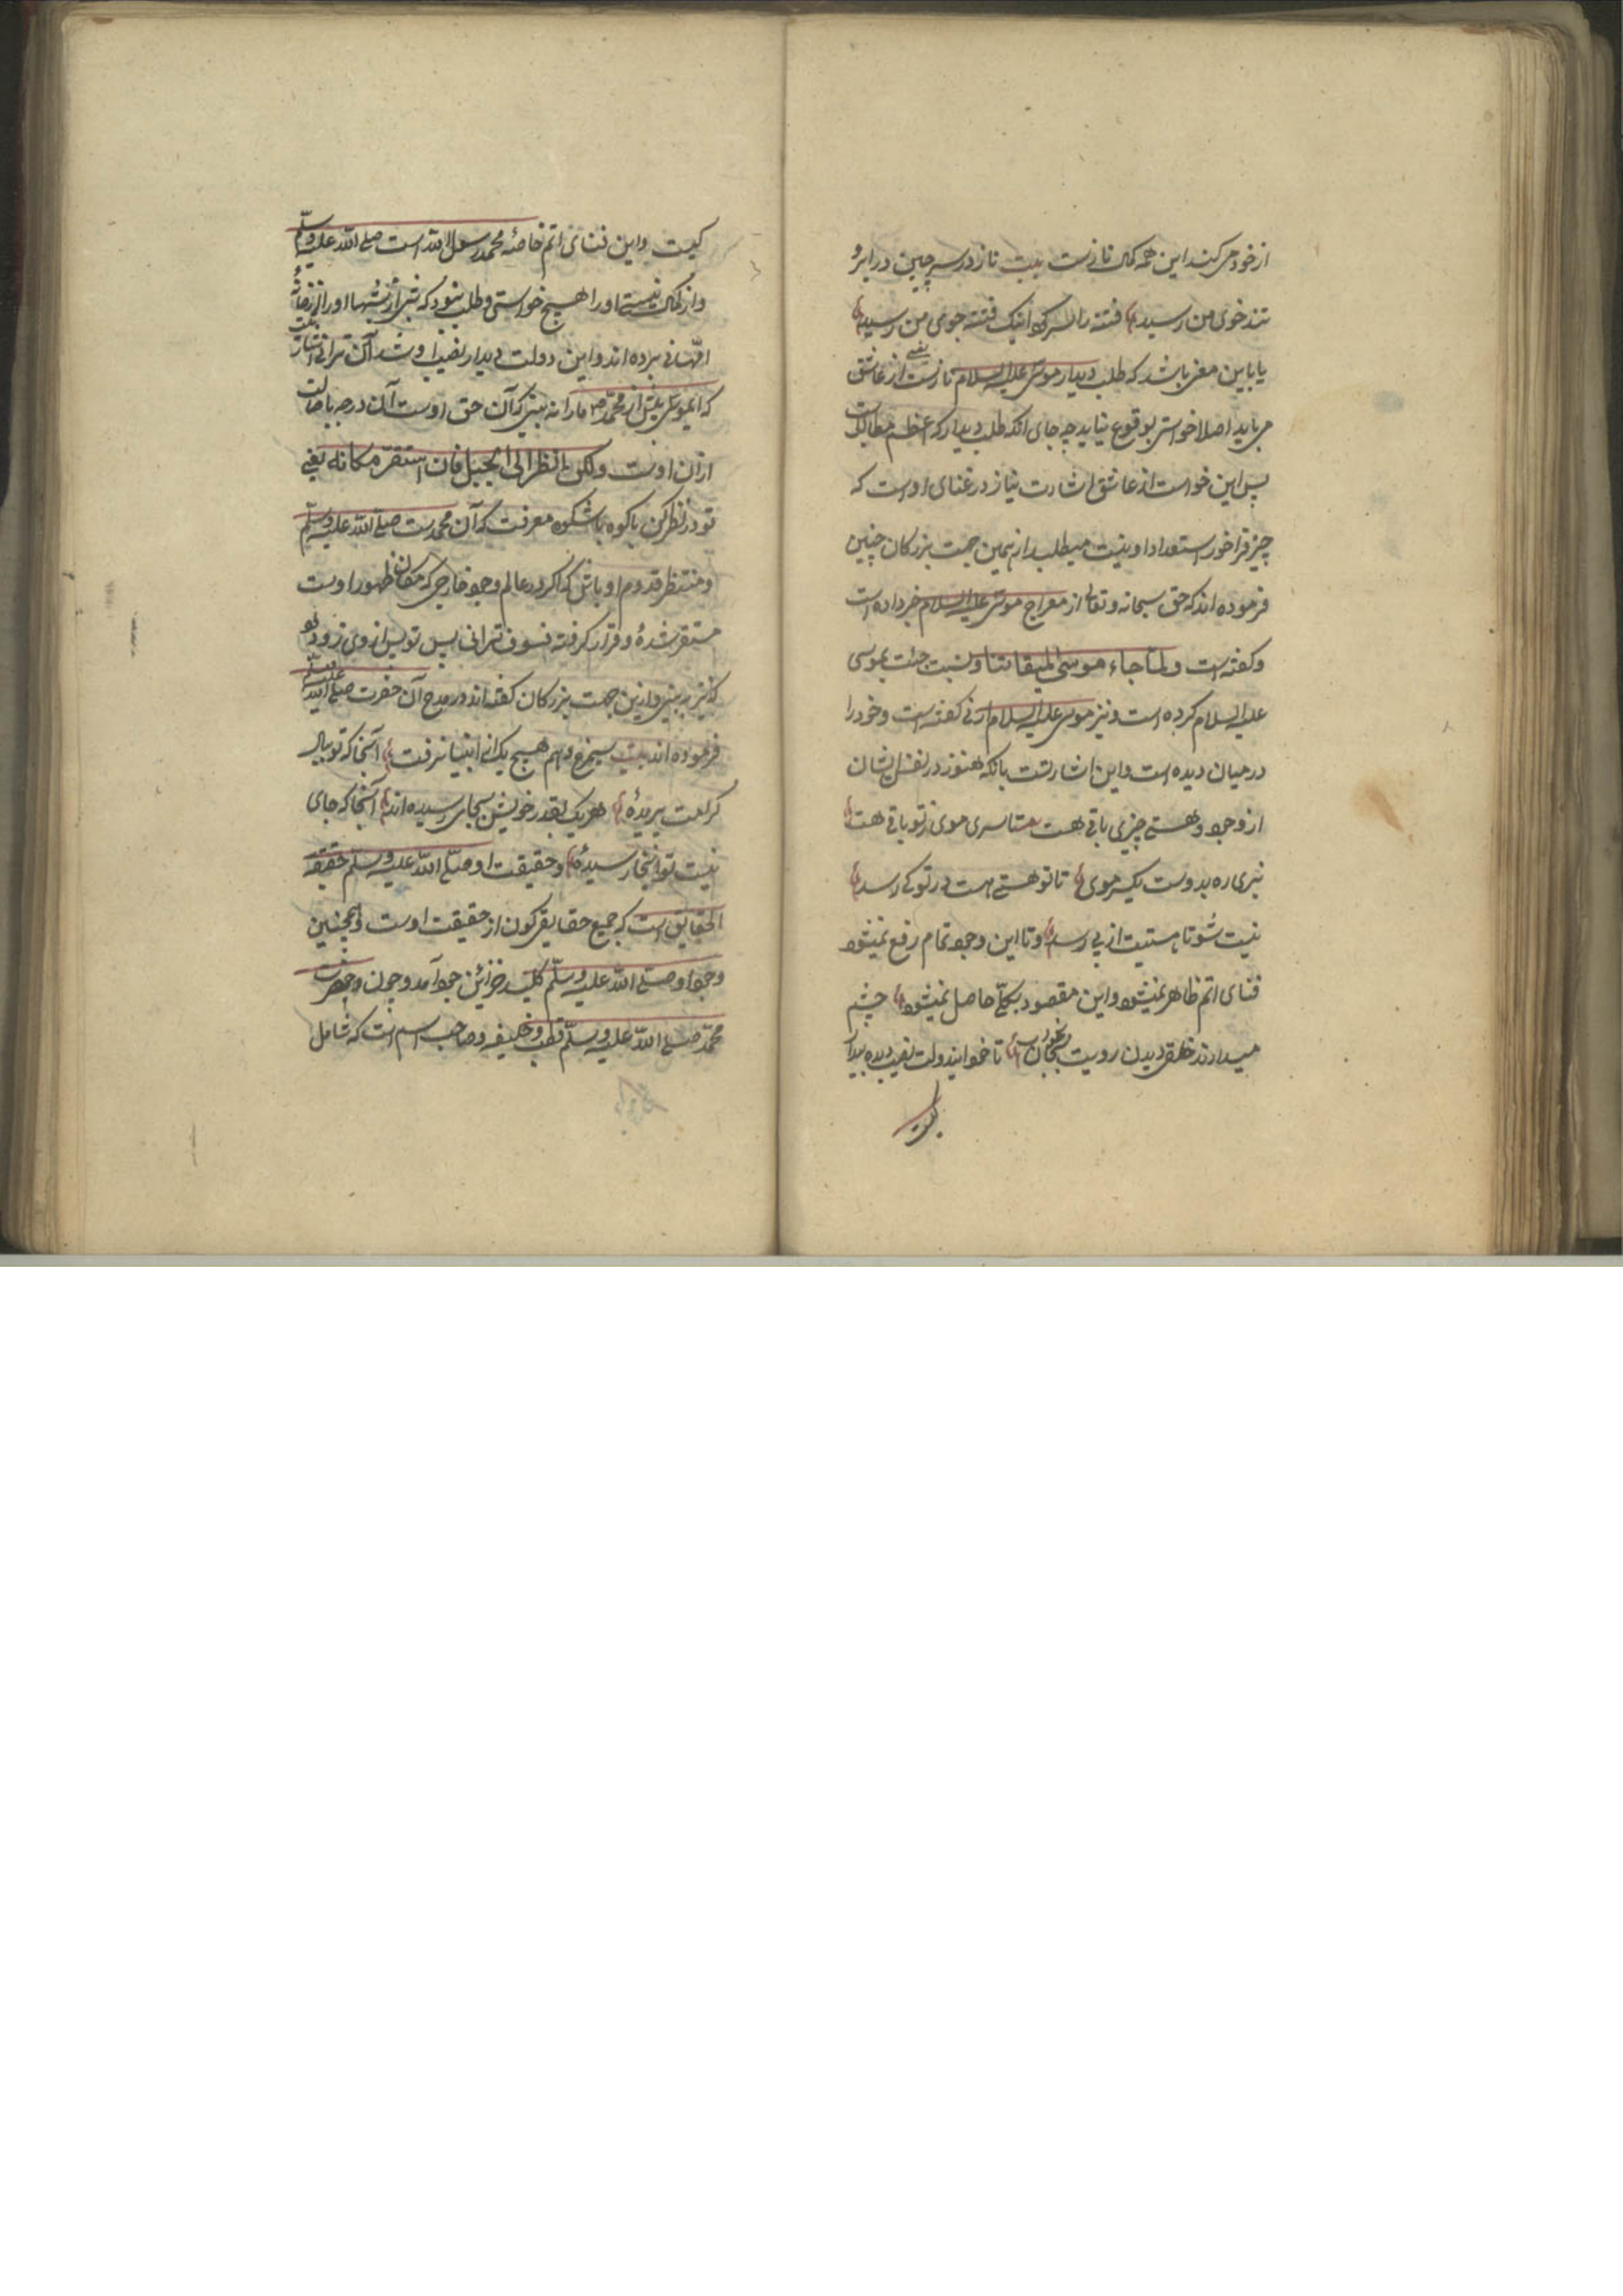 از خود می کند این همه کمال نازست بیت ناز در سر چین در ابرو
تند خوی من رسید فتنه را سر کرد اینک فتنه جوی من رسید
یا باین معنی باشد که طلب دیدار موسی علیه السلام نازست یعنی از عاشق
می باید اصلا خواستی بوقوع نیاید چه جای انکه طلب دیدار که اعظم مطالب است
پس این خواست از عاشق اشارت نیاز در غنای اوست که
چیز فراخور استعداد او نیست میطلبد از همین جهت بزرکان چنین
فرموده اند که حق سبحانه و تعالی از معراج موسی علیه السلام خبر داده است
و کفته است ولما جاء موسی لمیقاتنا و نسبت جئت بموسی
علیه السلام کرده است و نیز موسی علیه السلام ارنی کفته است و خود را
در میان دیده است و این اشارتست بانکه هنوز در نفس ایشان
از وجود و هستی چیزی باقی هست تا سری موی ز تو باقی هست
نبری ره بدوست یکسر موی تا تو هستی هست در تو کی رسد
نیست شو تا هستیت از پی رسد و تا این وجود تمام رفع نمیشود
فنای اتم ظاهر نمیشود و این مقصود بکلی حاصل نمیشود چشم
میدارند خلقی دیدن رویت بخواب تا خود این دولت نصیب دیده بیدار
کیست
کیست و این فنای اتم خاصه محمد رسول الله است صلی الله علیه وسلم
و از کمال نیستی او را هیچ خواستی و طلب نبود که شبی از شبها او را از خانه
امهانی برده اند و این دولت دیدار نصیب او شد آن لن ترانی اشارتست
که ای موسی پیش از محمد ص ما را نه بینی که آن حق اوست آن درجه باصالت
ازان اوست ولکن انظر الی الجبل فان استقر مکانه یعنی
تو در نظر کن باکوه باشکوه معرفت که آن محمدست صلی الله علیه وسلم
و منتظر قدوم او باش که اکر در عالم وجود خارجی که مکان ظهور اوست
مستقر شده و قرار کرفته فسوف ترانی پس تو پس از وی زود بود
که نیز ببینی و ازین جهت بزرکان کفته اند در مدح آن حضرت صلی الله علیه وسلم
فرموده اند بیت سیمرغ وهم هیچ یک از انبیا نرفت آنجا که تو ببال
کرامت پریده هر یک بقدر خویش بجای رسیده اند آنجا که جای
نیست تو آنجا رسیده و حقیقت او صلی الله علیه وسلم حقیقة
الحقایق است که جمیع حقایق کون از حقیقت اوست و همچنین
وجود او صلی الله علیه وسلم کلید خزائن جود آمد و چون وجود حضرت
محمد صلی الله علیه وسلم قطب و خلیفه و صاحب اسم است که شامل